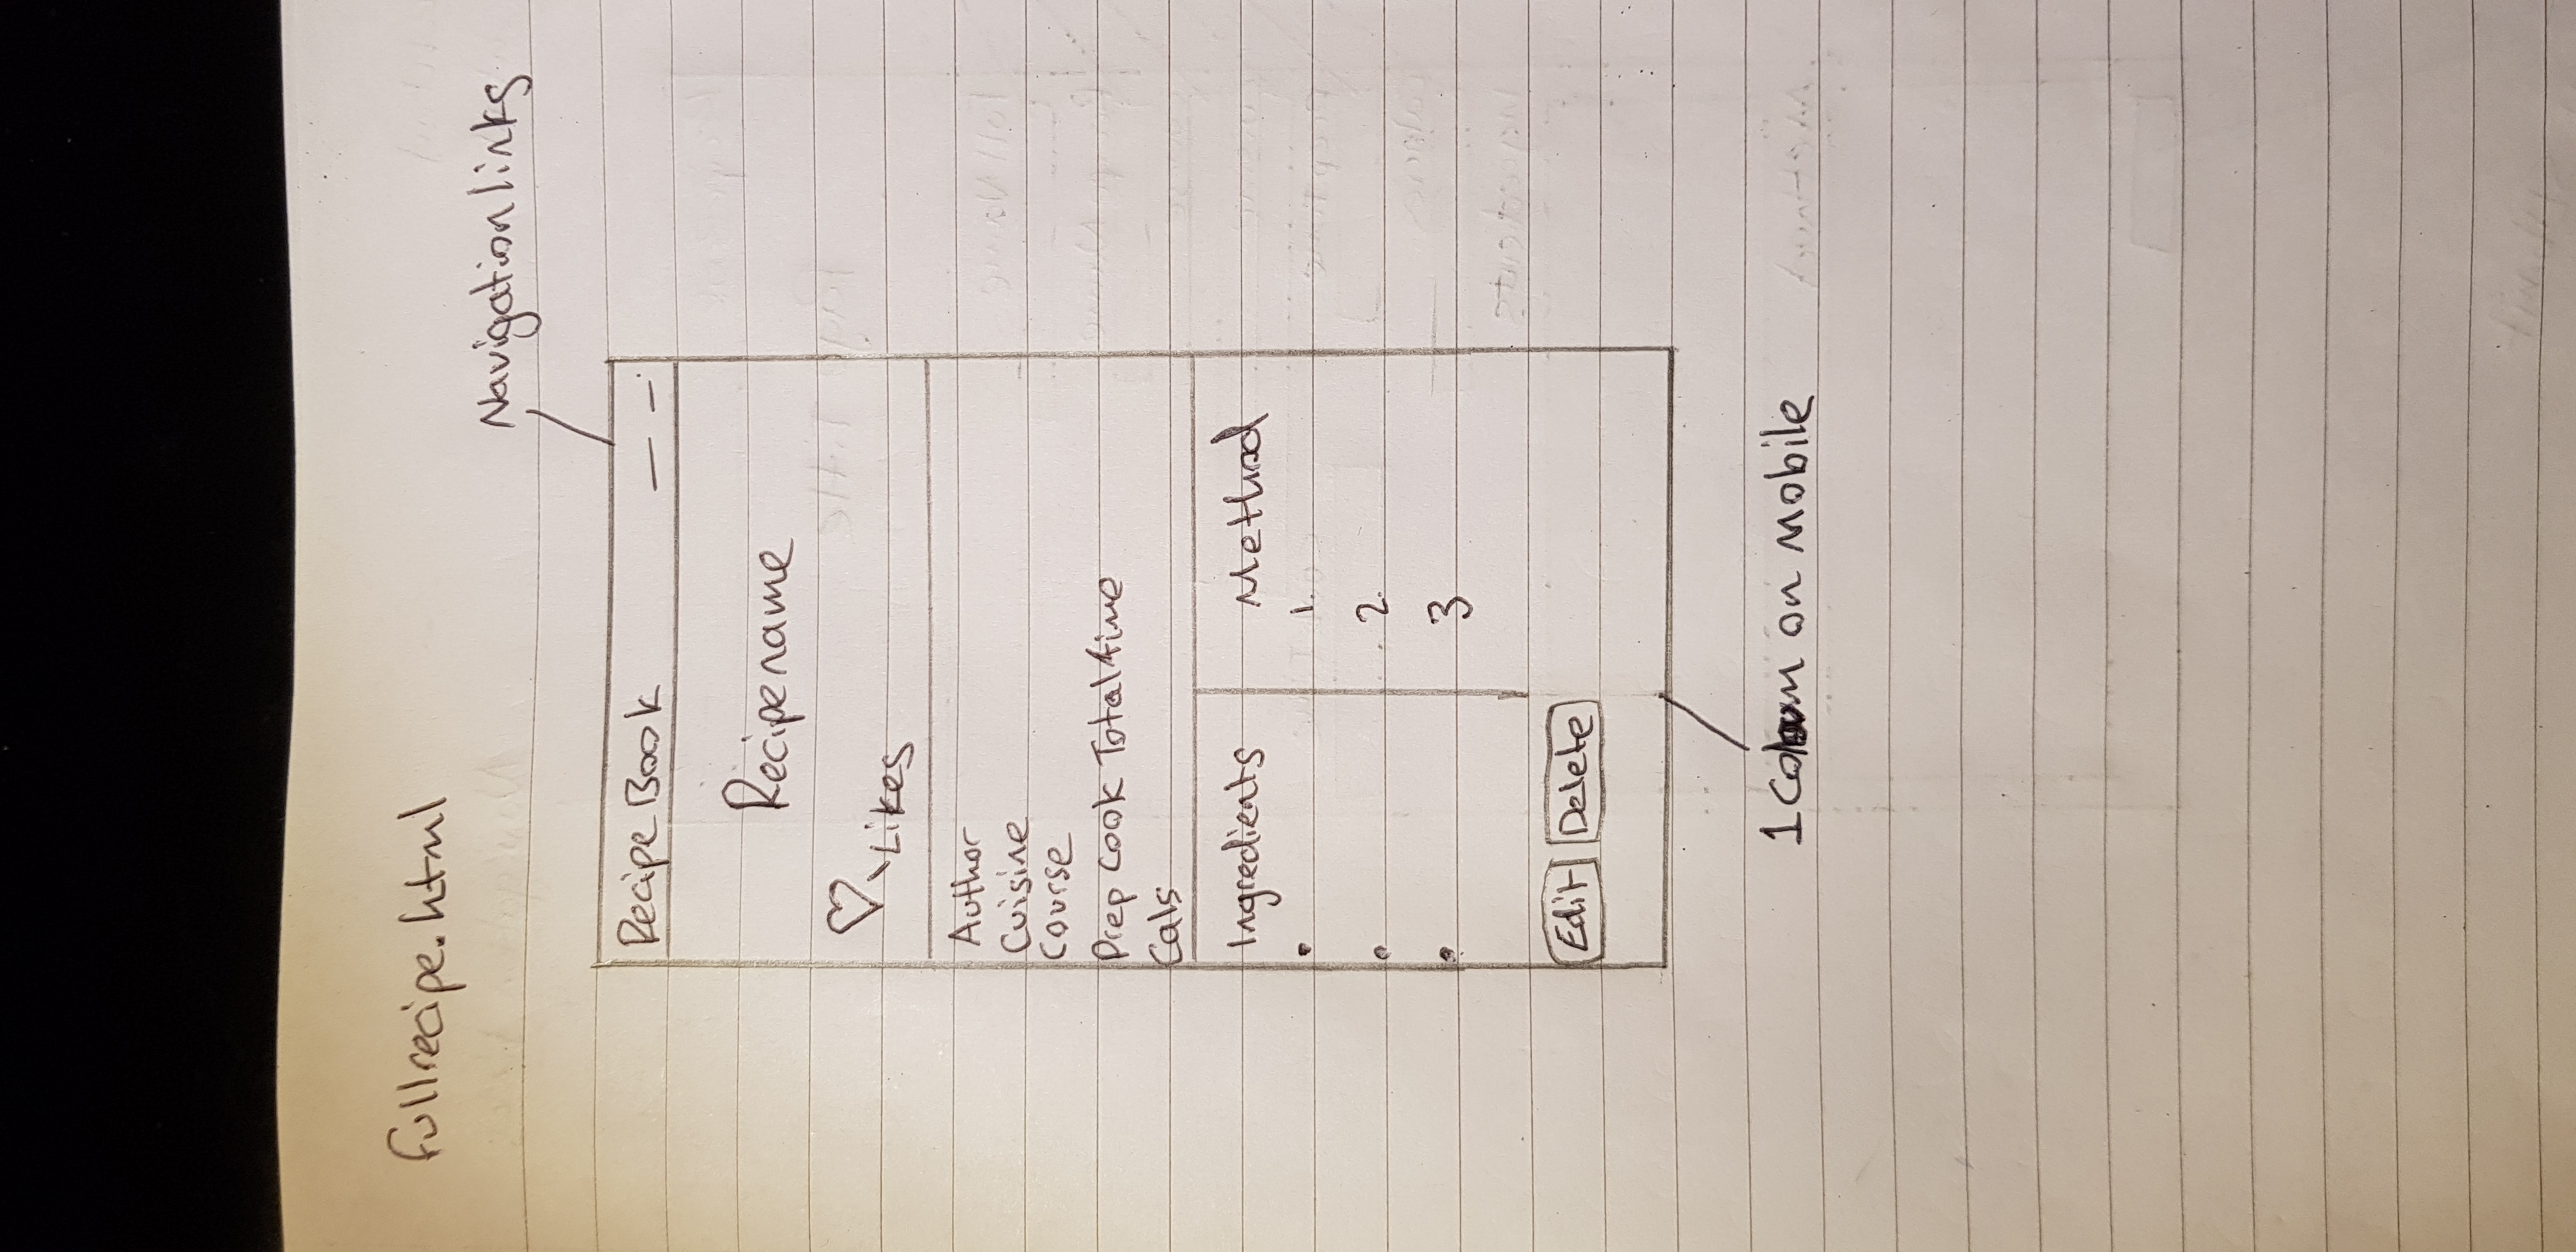 fullrecipe.html
Navigation links
Recipe Book
Recipe name
Likes
Author
Cuisine
Course
Prep Cook Total time
Cals
Ingredients
Method
1.
2.
3
Edit
Delete
1 Coloum on mobile